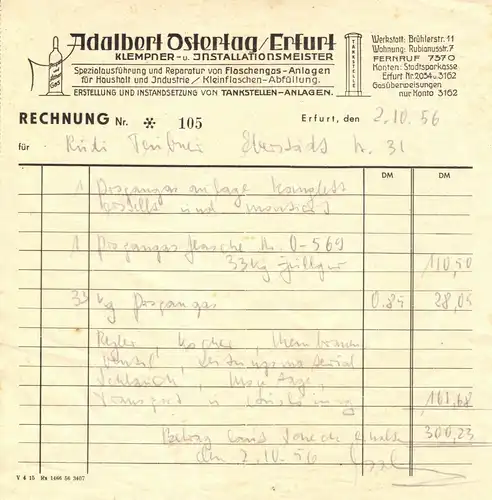 Propan- und Butan-Gas
Adalbert Ostertag/Erfurt
KLEMPNER- u. INSTALLATIONSMEISTER
Spezialausführung und Reparatur von Flaschengas-Anlagen
für Haushalt und Industrie / Kleinflaschen-Abfüllung.
ERSTELLUNG UND INSTANDSETZUNG VON TANKSTELLEN-ANLAGEN.
TANKSTELLE
Werkstatt: Brühlerstr. 11
Wohnung: Rubianusstr. 7
FERNRUF 7370
Konten: Stadtsparkasse
Erfurt Nr. 2034 u. 3162
Gasüberweisungen
nur Konto 3162
RECHNUNG Nr. * 105 Erfurt, den 2.10.56
für Rudi Teubner 31
DM DM
1 Propangas anlage komplett
und montiert
1 Propangas flasche Nr. 0-569
33kg 110,50
33 kg Propangas 0.85 28,05
Regler, Kocher, Membran
ventil, Leitungsmaterial
Schlauch, Montage,
Transport 161,68
Betrag 300,23
den 2.10.56
V 4 15 Rx 1466 56 3407